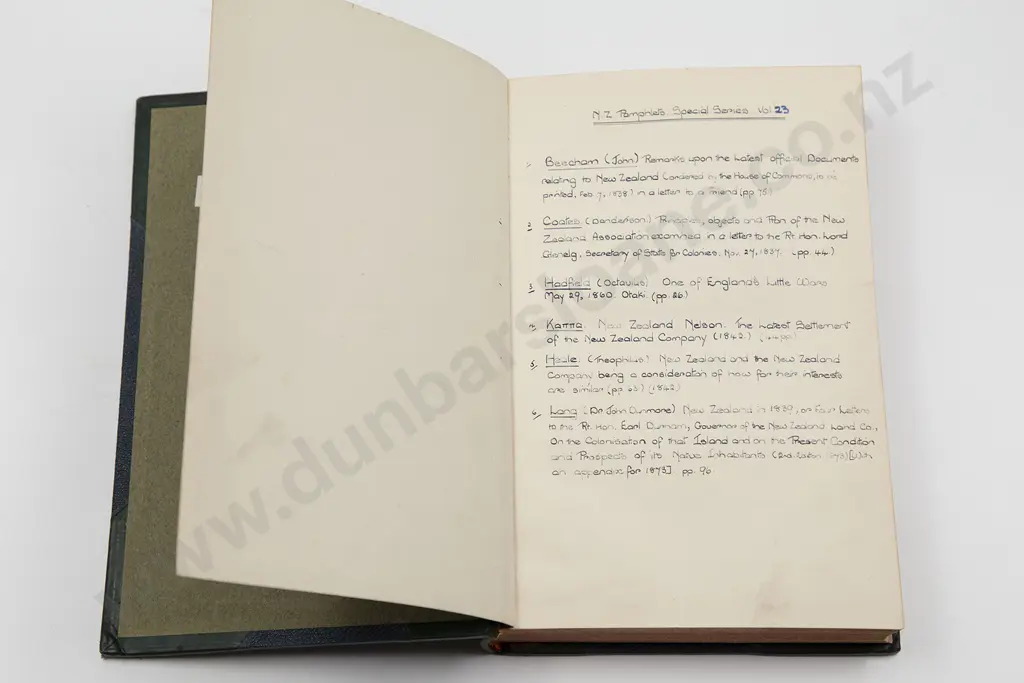 N.Z Pamphlets Special Series Vol 23
1, Beecham (John) Remarks upon the Latest official Documents
relating to New Zealand (ordered in the House of Commons, to be
printed, Feb 7, 1838) in a letter to a friend (pp 75)
2, Coates (Danderson) Principles, objects and Plan of the New
Zealand Association examined in a letter to the Rt. Hon. Lord
Glenelg, Secretary of State for Colonies. Nov. 27, 1837. (pp. 44)
3, Hadfield (Octavius) One of England's Little Wars
May 29, 1860. Otaki. (pp. 26.)
4, Kappa. New Zealand Nelson. The Latest Settlement
of the New Zealand Company (1842.)
5, Heale. (Theophilus) New Zealand and the New Zealand
Company being a consideration of how far their interests
are similar (pp 63.) (1842.)
6, Lang (Dr John Dunmore) New Zealand in 1839, or Four Letters
to the Rt. Hon. Earl Durham, Governor of the New Zealand Land Co.,
On the Colonisation of that Island and on the Present Condition
and Prospects of its Native Inhabitants
an appendix for 1873] pp. 96
www.dunbarsloane.co.nz